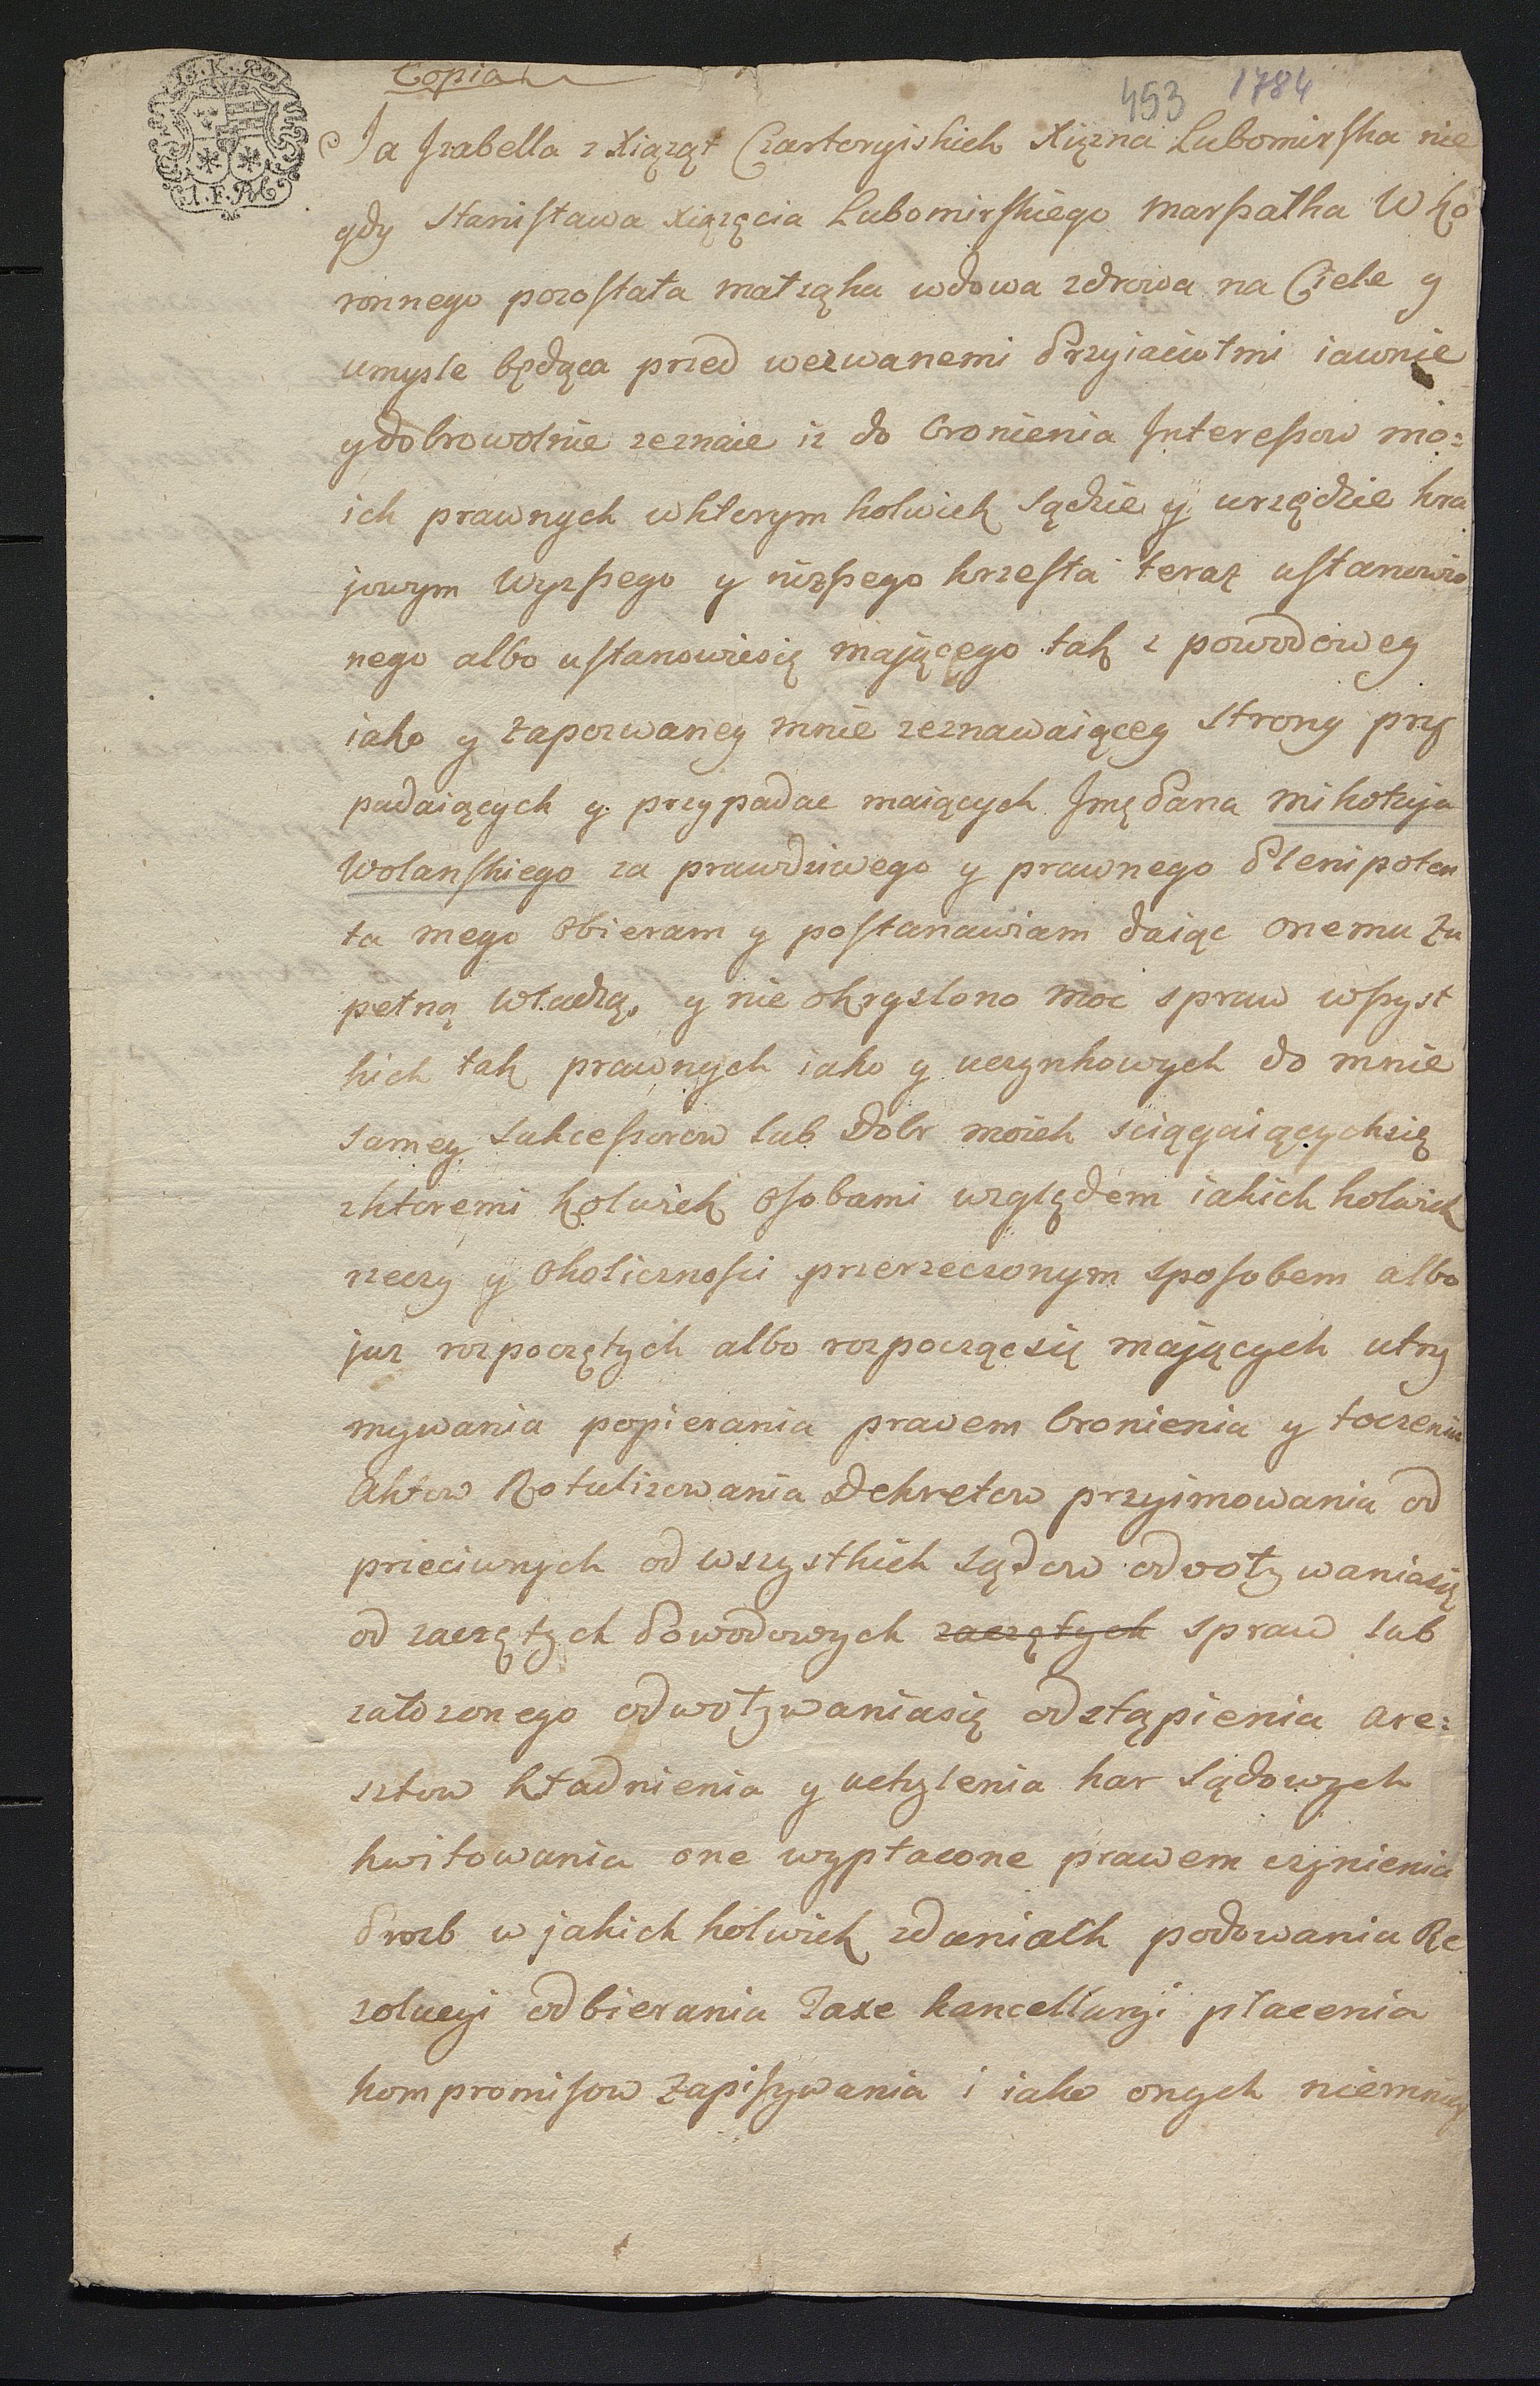 Copia
453 1784
Ja Izabella z Xiąząt Czartoryiskich Xiężna Lubomirska nie
gdy Stanisława Xiążęcia Lubomirskiego Marszałka W Ko
ronnego pozostała małżąka wdowa zdrowa na Ciele y
umysle będąca przed wezwanemi Przyiaciołmi iawnie
y dobrowolnie zeznaie iz do bronienia Interessow mo:
ich prawnych w ktorym kolwiek Sądzie y urzędzie kra
jowym Wyzszego y nizszego krzesła teraz ustanowio
nego albo ustanowiesię mającego tak z powodowey
iako y zapozwaney mnie zeznawaiącey Strony przy
padaiących y przypadac maiących Jmę Pana Mikołaja
Wolanskiego za prawdziwego y prawnego Plenipoten
ta mego Obieram y postanawiam daiąc onemu Zu
pełną władzą, y nie okryslono moc spraw wszyst
kich tak prawnych iako y uczynkowych do mnie
Samey Sukcessorow lub Dobr moich sciągaiącychsię
z ktoremi kolwiek Osobami względem iakich kolwiek
rzeczy y Okolicznosci przerzeczonym sposobem albo
juz rozpoczętych albo rozpocząćsię mających utrzy
mywania popierania prawem bronienia y toczenia
Aktow Rotulizowania Dekretow przyimowania od
przeciwnych od wszystkich Sądow odwoływaniasię
od zaczętych Powodowych zaczętych spraw lub
załozonego odwoływaniasię odstąpienia are:
sztow kładnienia y uchylenia kar Sądowych
kwitowania one wypłacone prawem czynienia
Prozb w jakich kolwiek zdaniach podowania Re
zolucyi odbierania Taxe kancellaryi płacenia
kompromisow Zapisywania i iako onych niemniey